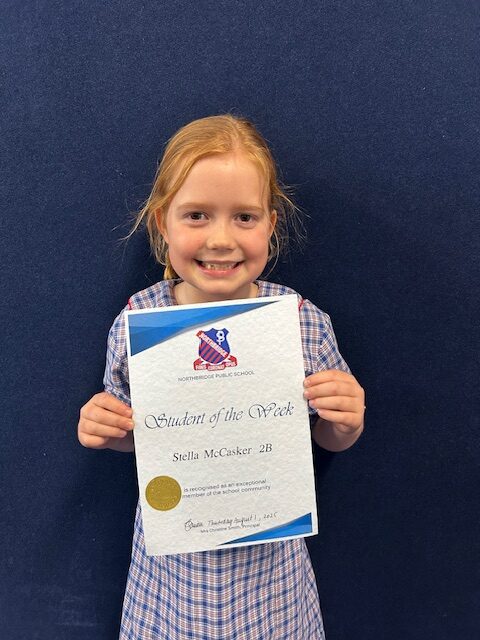 NORTHBRIDGE
NORTHBRIDGE PUBLIC SCHOOL
Student of the Week
Stella McCasker 2B
is recognised as an exceptional
member of the school community
August 1, 2025
Mrs Christine Smith, Principal